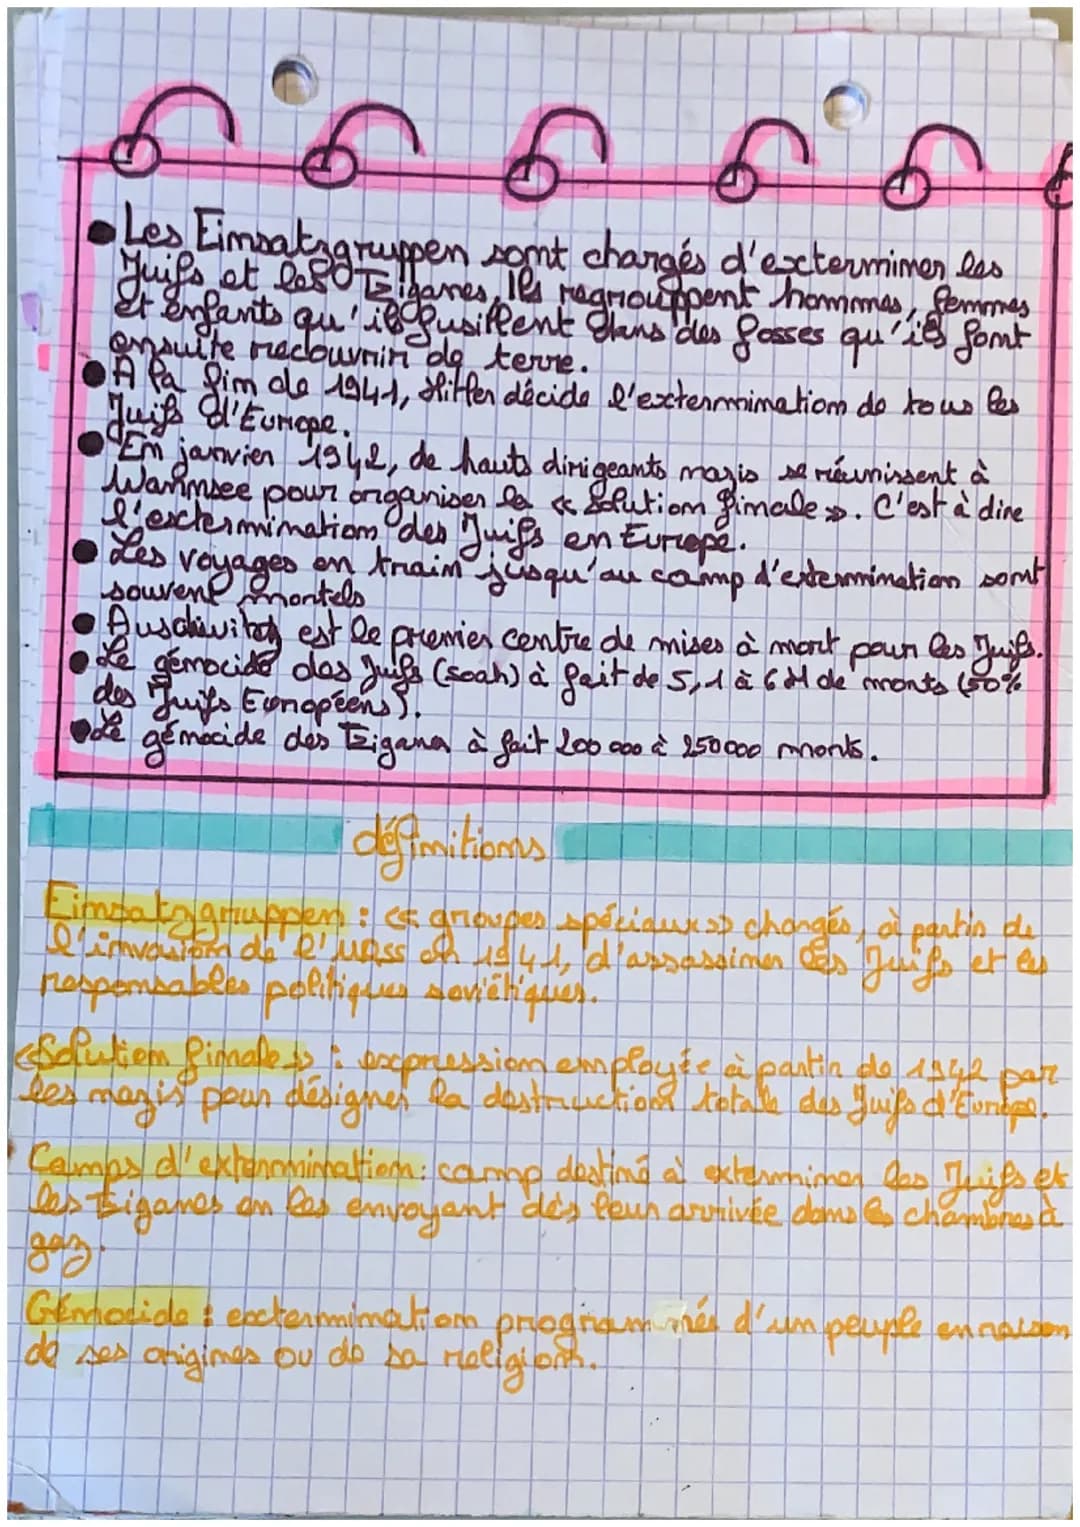 • Les Einsatzgruppen sont chargés d'exterminer les
Juifs et les Tziganes, Ils regrouppent hommes, femmes
et enfants qu'ils fusillent dans des fosses qu'ils font
ensuite recouvrir de terre.
• A la fin de 1941, Hitler décide l'extermination de tous les
Juifs d'Europe.
• En janvier 1942, de hauts dirigeants nazis se réunissent à
Wannsee pour organiser la « Solution finale ». C'est à dire
l'extermination des Juifs en Europe.
• Les voyages en train jusqu'au camp d'extermination sont
souvent mortels
• Auschwitz est le premier centre de mises à mort pour les Juifs.
• Le génocide des Juifs (soah) à fait de 5,1 à 6 M de morts (50%
des Juifs Européens).
• Le génocide des Tziganes à fait 200 000 à 250000 morts.
définitions
Einsatzgruppen : « groupes spéciaux » chargés, à partir de
l'invasion de l'URSS en 1941, d'assassiner les Juifs et les
responsables politiques soviétiques.
«Solution finale » : expression employée à partir de 1942 par
les nazis pour désigner la destruction totale des Juifs d'Europe.
Camps d'extermination : camp destiné à exterminer les Juifs et
les Tziganes en les envoyant dès leur arrivée dans les chambres à
gaz.
Génocide : extermination programmés d'un peuple en raison
de ses origines ou de sa religion.